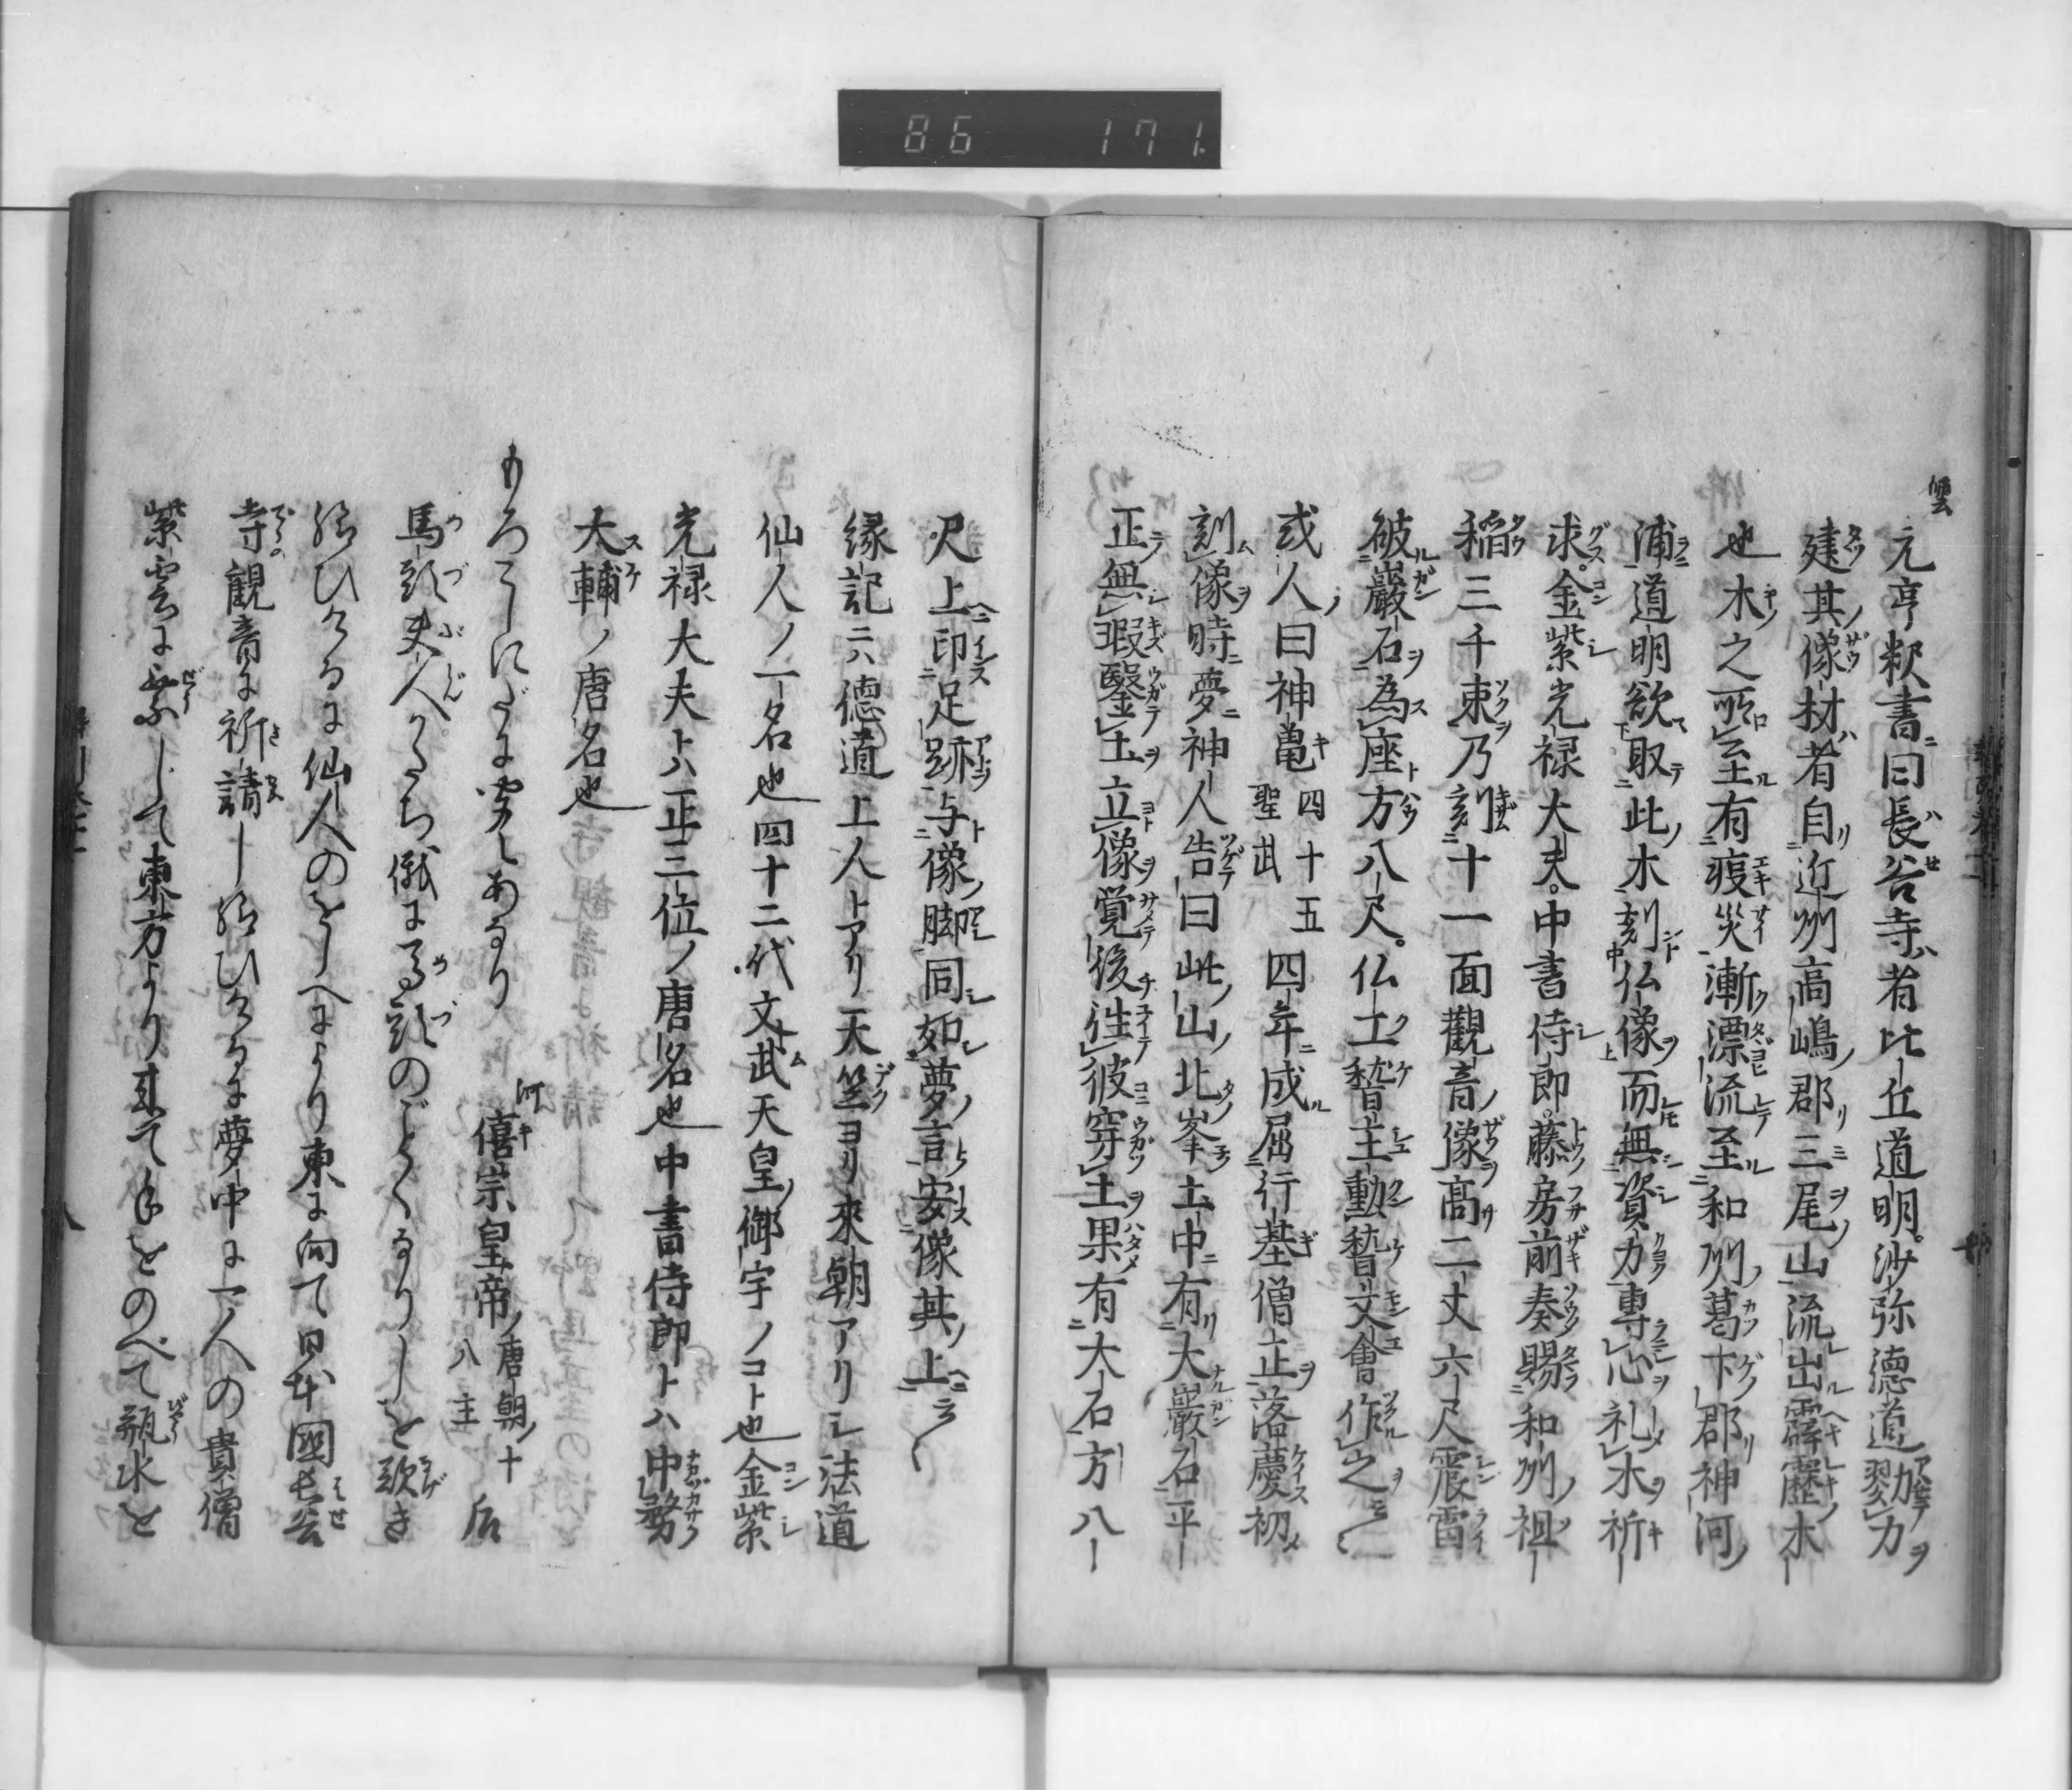 86 171
雲
元亨釈書曰長谷寺者比丘道明沙弥徳道勠力
建其像材者自近州高嶋郡三尾山流出霹靂木
也木之所至有疫災漸漂流至和州葛下郡神河
浦道明欲取此木刻仏像而無資力専心礼木祈
求金紫光禄大夫中書侍郎藤房前奏賜和州祖
稲三千束乃刻十一面觀音像高二丈六尺震雷
破巖石為座方八尺仏工稽主勲稽文會作之
或人曰神亀四十五聖武四年成屈行基僧正落慶初
刻像時夢神人告曰此山北峯土中有大巖石平
正無瑕鑿土立像覚後往彼穿土果有大石方八
尺上印足跡与像脚同如夢言安像其上
縁記ニハ徳道上人トアリ天竺ヨリ來朝アリシ法道
仙人ノ一名也四十二代文武天皇ノ御宇ノコト也金紫
光禄大夫トハ正三位ノ唐名也中書侍郎トハ中務
大輔ノ唐名也
もろこしにだに霊しあるなり
僖宗皇帝ノ唐朝ノ十八主 后
馬頭夫人かたち俄に馬頭のごとくなりしを歎き
給ひけるに仙人のをしへにより東に向て日本國長谷
寺観音に祈請し給ひけるに夢中に一人の貴僧
紫雲に乗して東方より来て手をのべて瓶水を